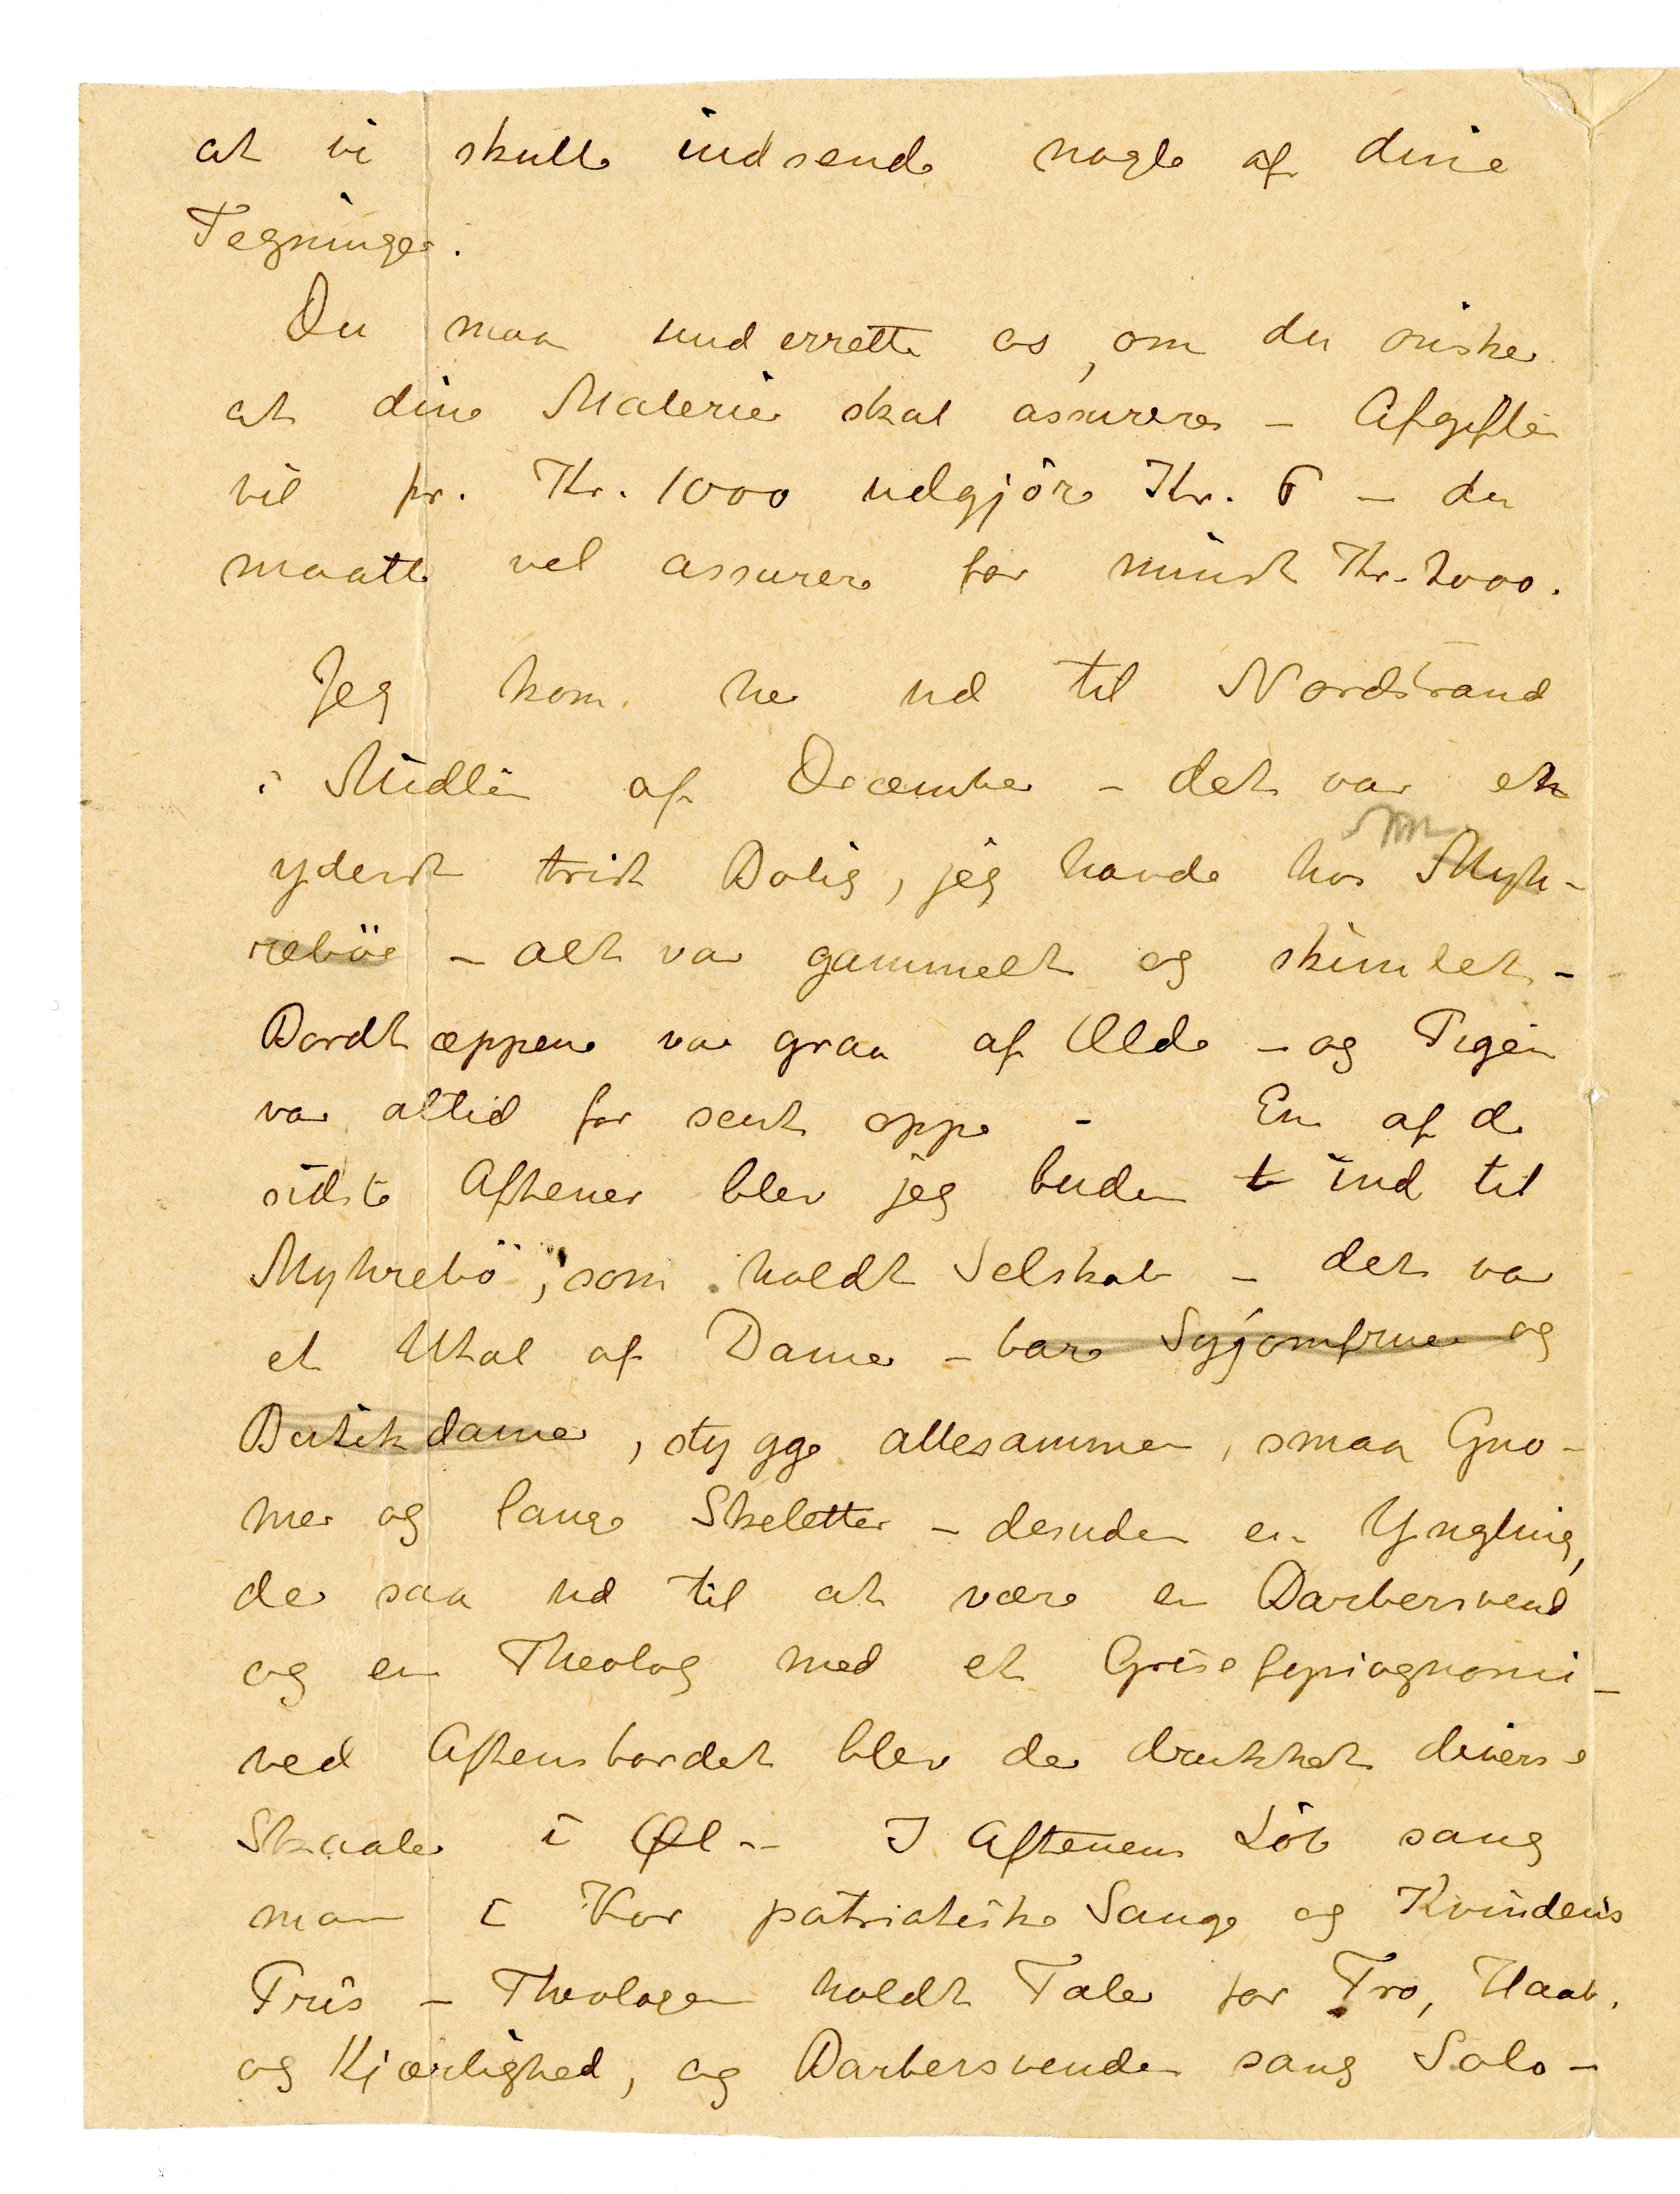 at vi skulle indsende nogle af dine
Tegninger.
Du maa underrette os, om du ønsker
at dine Malerier skal assureres – Afgiften
vil pr. Kr. 1000 udgjøre Kr. 6 – du
maatte vel assurere for mindst Kr. 2000.
Jeg kom her ud til Nordstrand
i Midten af December – det var en
yderst trist Bolig, jeg havde hos Myh-
rebøe – alt var gammelt og skimlet –
Bordtæppene var graa af Ælde – og Pigen
var altid for sent oppe – En af de
sidste Aftener blev jeg buden t ind til
Myhrebö, som holdt Selskab – det var
et Utal af Damer – bare Syjomfruer og
Butikdamer, stygge allesammen, smaa Gno-
mer og lange Skeletter – desuden en Yngling,
der saa ud til at være en Barbersvend
og en Theolog med et Grisefysiognomi –
ved Aftensbordet blev der drukket diverse
Skaaler i Øl – I Aftenens Löb sang
man i Kor patriotiske Sange og Kvindens
Pris – Theologen holdt Taler for Tro, Haab,
og Kjærlighed, og Barbersvenden sang Solo –